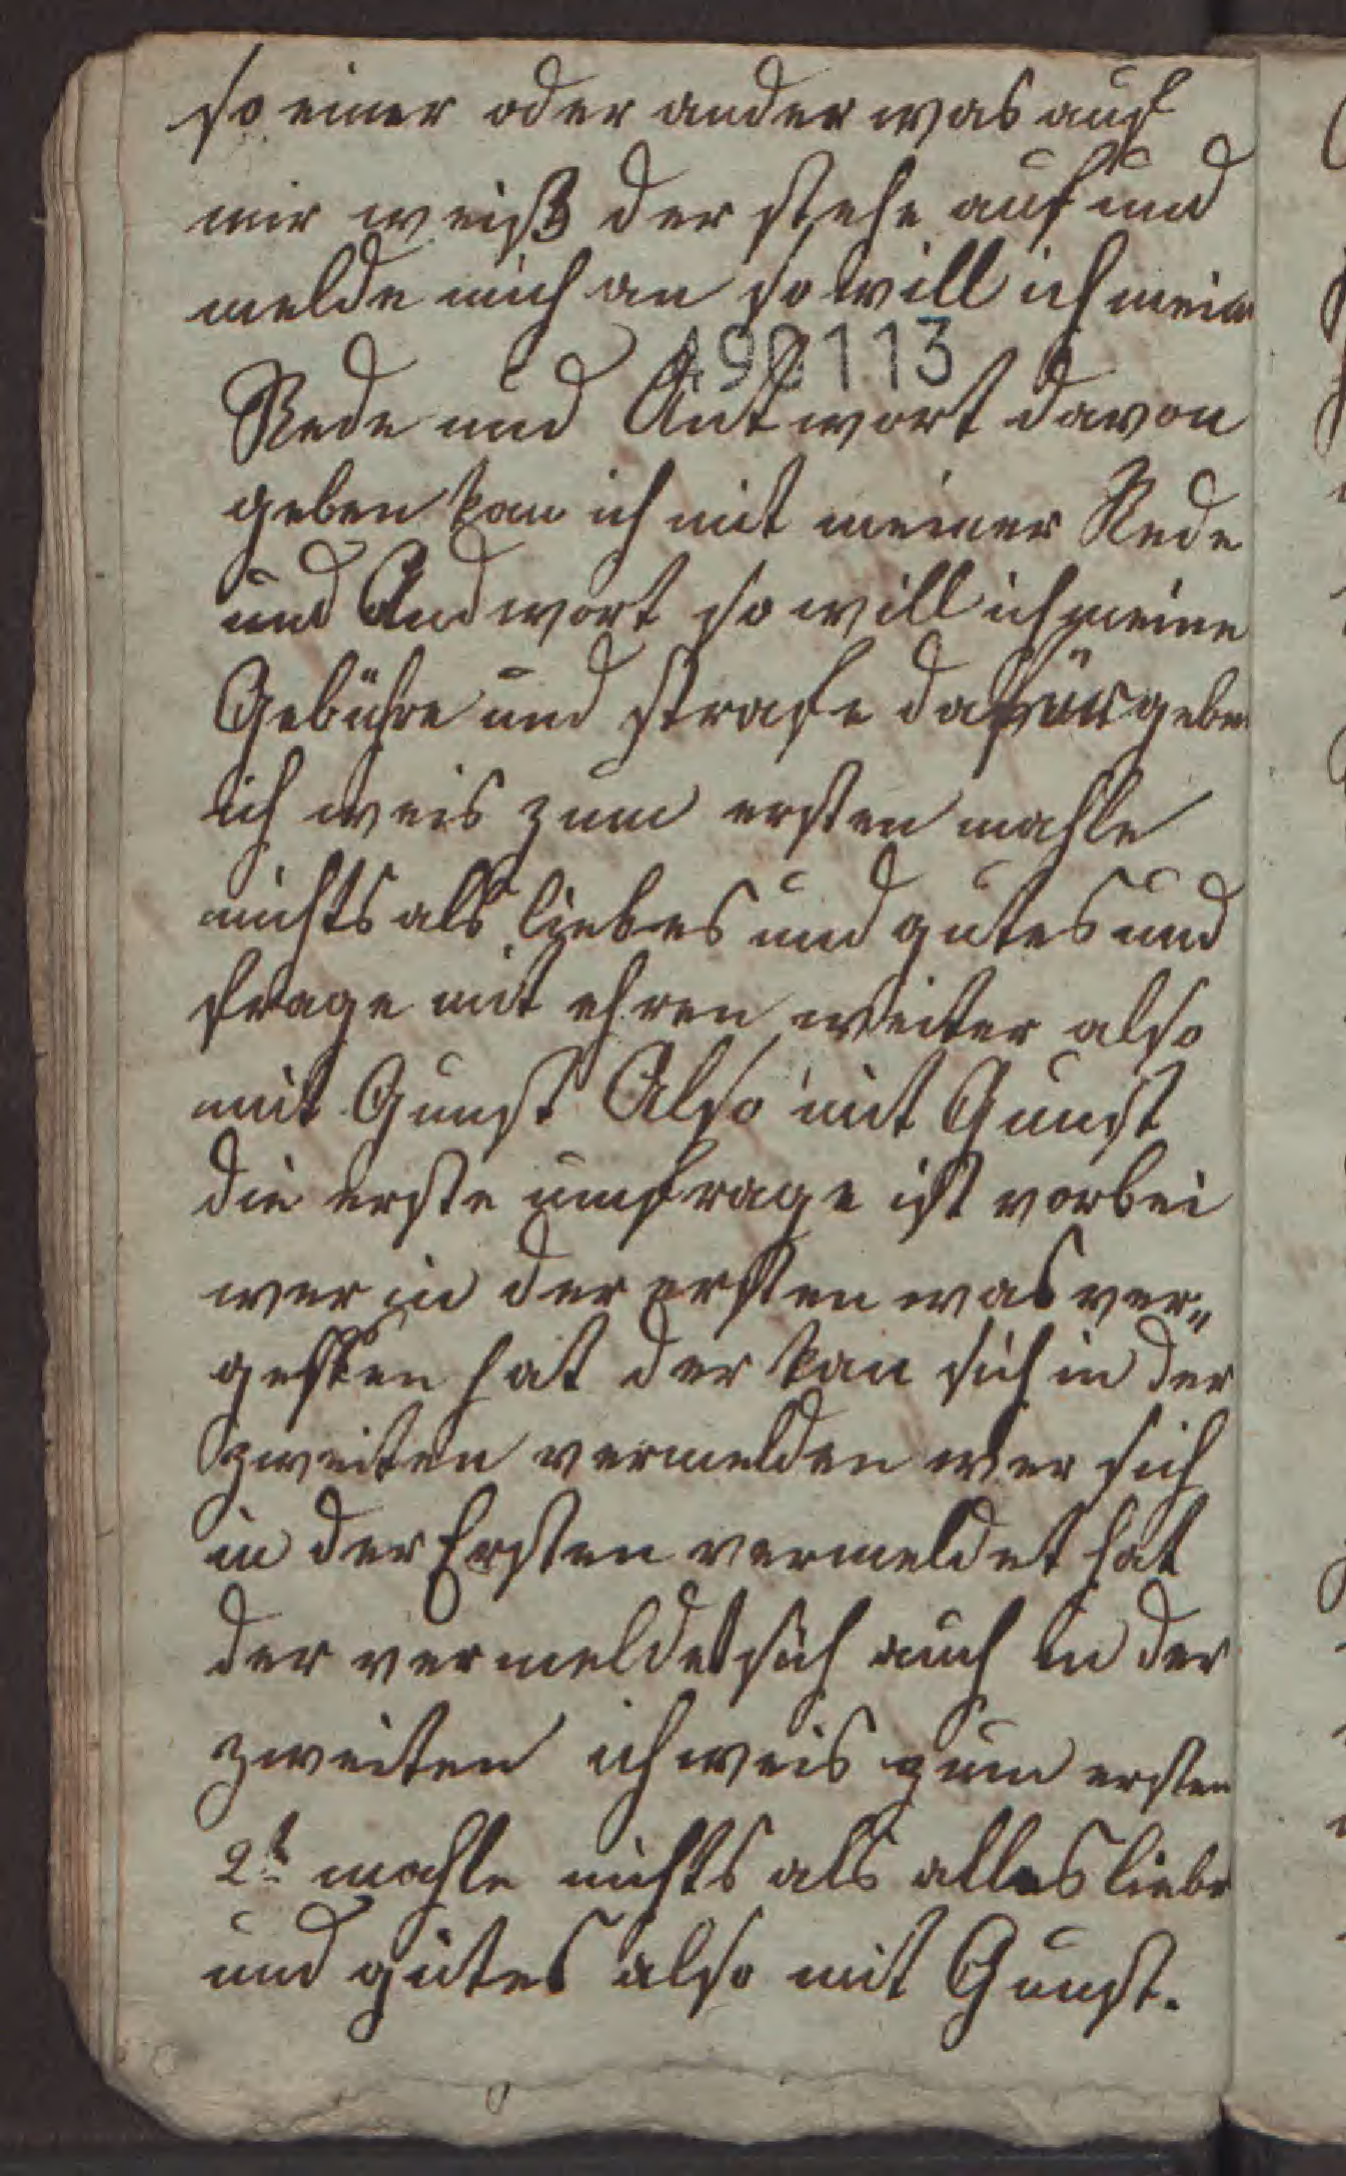 so einer oder ander was auf
mir weiß der stehe auf und
melde mich an so will ich mein
490113
Rede und Antwort davon
geben kan ich mit meiner Rede
und Andwort so will ich meine
Gebühre und strafe dafür geben
ich weis zum ersten mahle
nichts als liebes und gutes und
frage mit ehren weiter also
mit Gunst Also mit Gunst
die erste umfrage ist vorbei
wer in der ersten was ver„
gessen hat der kan sich in der
zweiten vermelden wer sich
in der Ersten vermeldet hat
der vermeldet sich auch in der
zweiten ich weis zum ersten
2t mahle nichts als alles liebe
und gutes also mit Gunst.